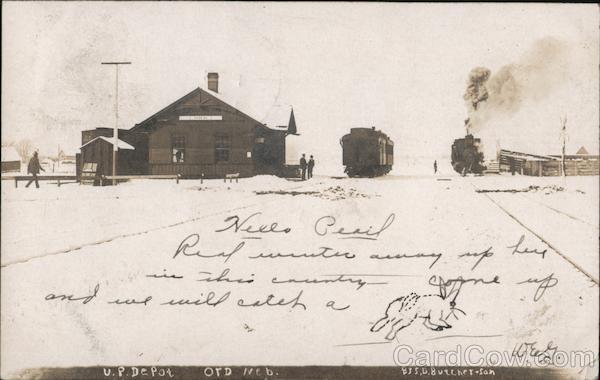 Hello Pearl
Real winter away up here
in this country come up
and we will catch a
W.E.G.
U.P. Depot Ord Neb. By S.D. Butcher & Son
CardCow.com